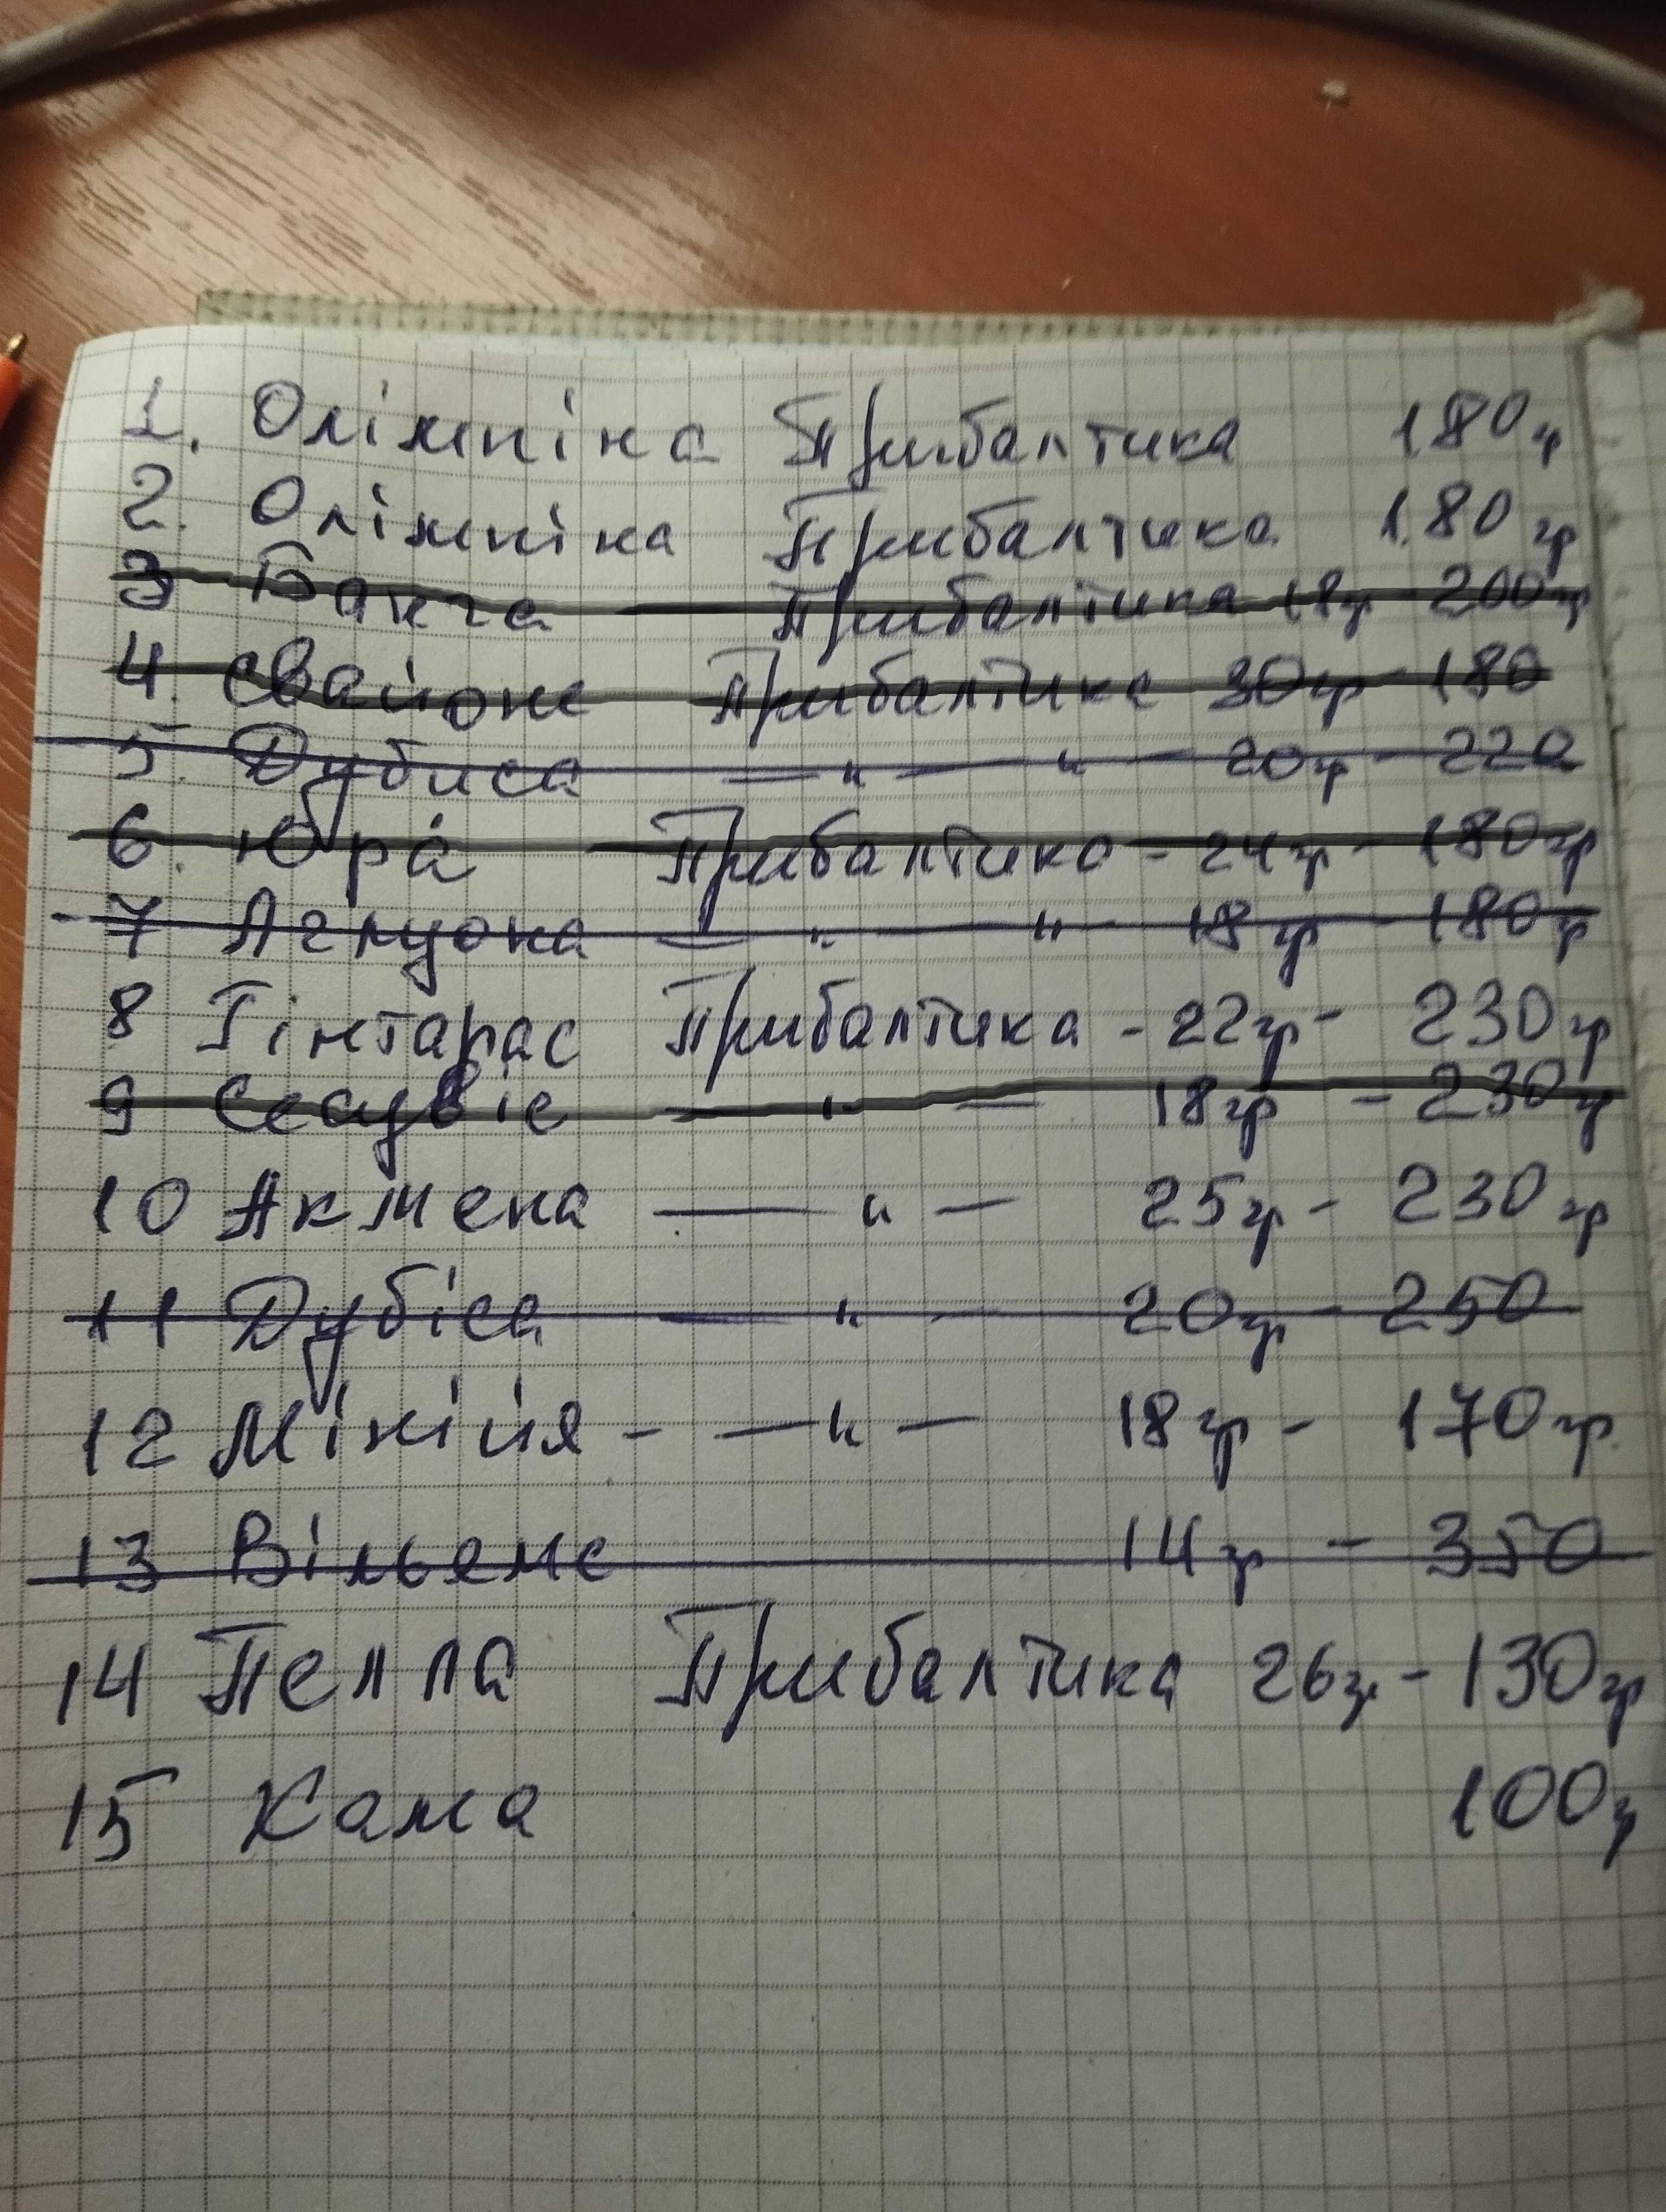 1. Олімпіка Прибалтика 180гр
2. Олімпіка Прибалтика 180 гр
3 Банга Прибалтика 18гр 200гр
4. Свайоне Прибалтика 30гр - 180
5. Дубиса — " — " — 20гр - 220
6. Юра Прибалтика - 24гр - 180гр
7 Аглуона — " — " — 18гр - 180гр
8 Гінтарас Прибалтика - 22гр - 230гр
9 Сесувіє — " — 18гр - 230гр
10 Акмена — " — 25гр - 230гр
11 Дубіса — " — 20гр - 250
12 Мінійя - — " — 18гр - 170гр.
13 Вільямс 14гр - 350
14 Пелла Прибалтика 26гр - 130гр
15 Кама 100гр